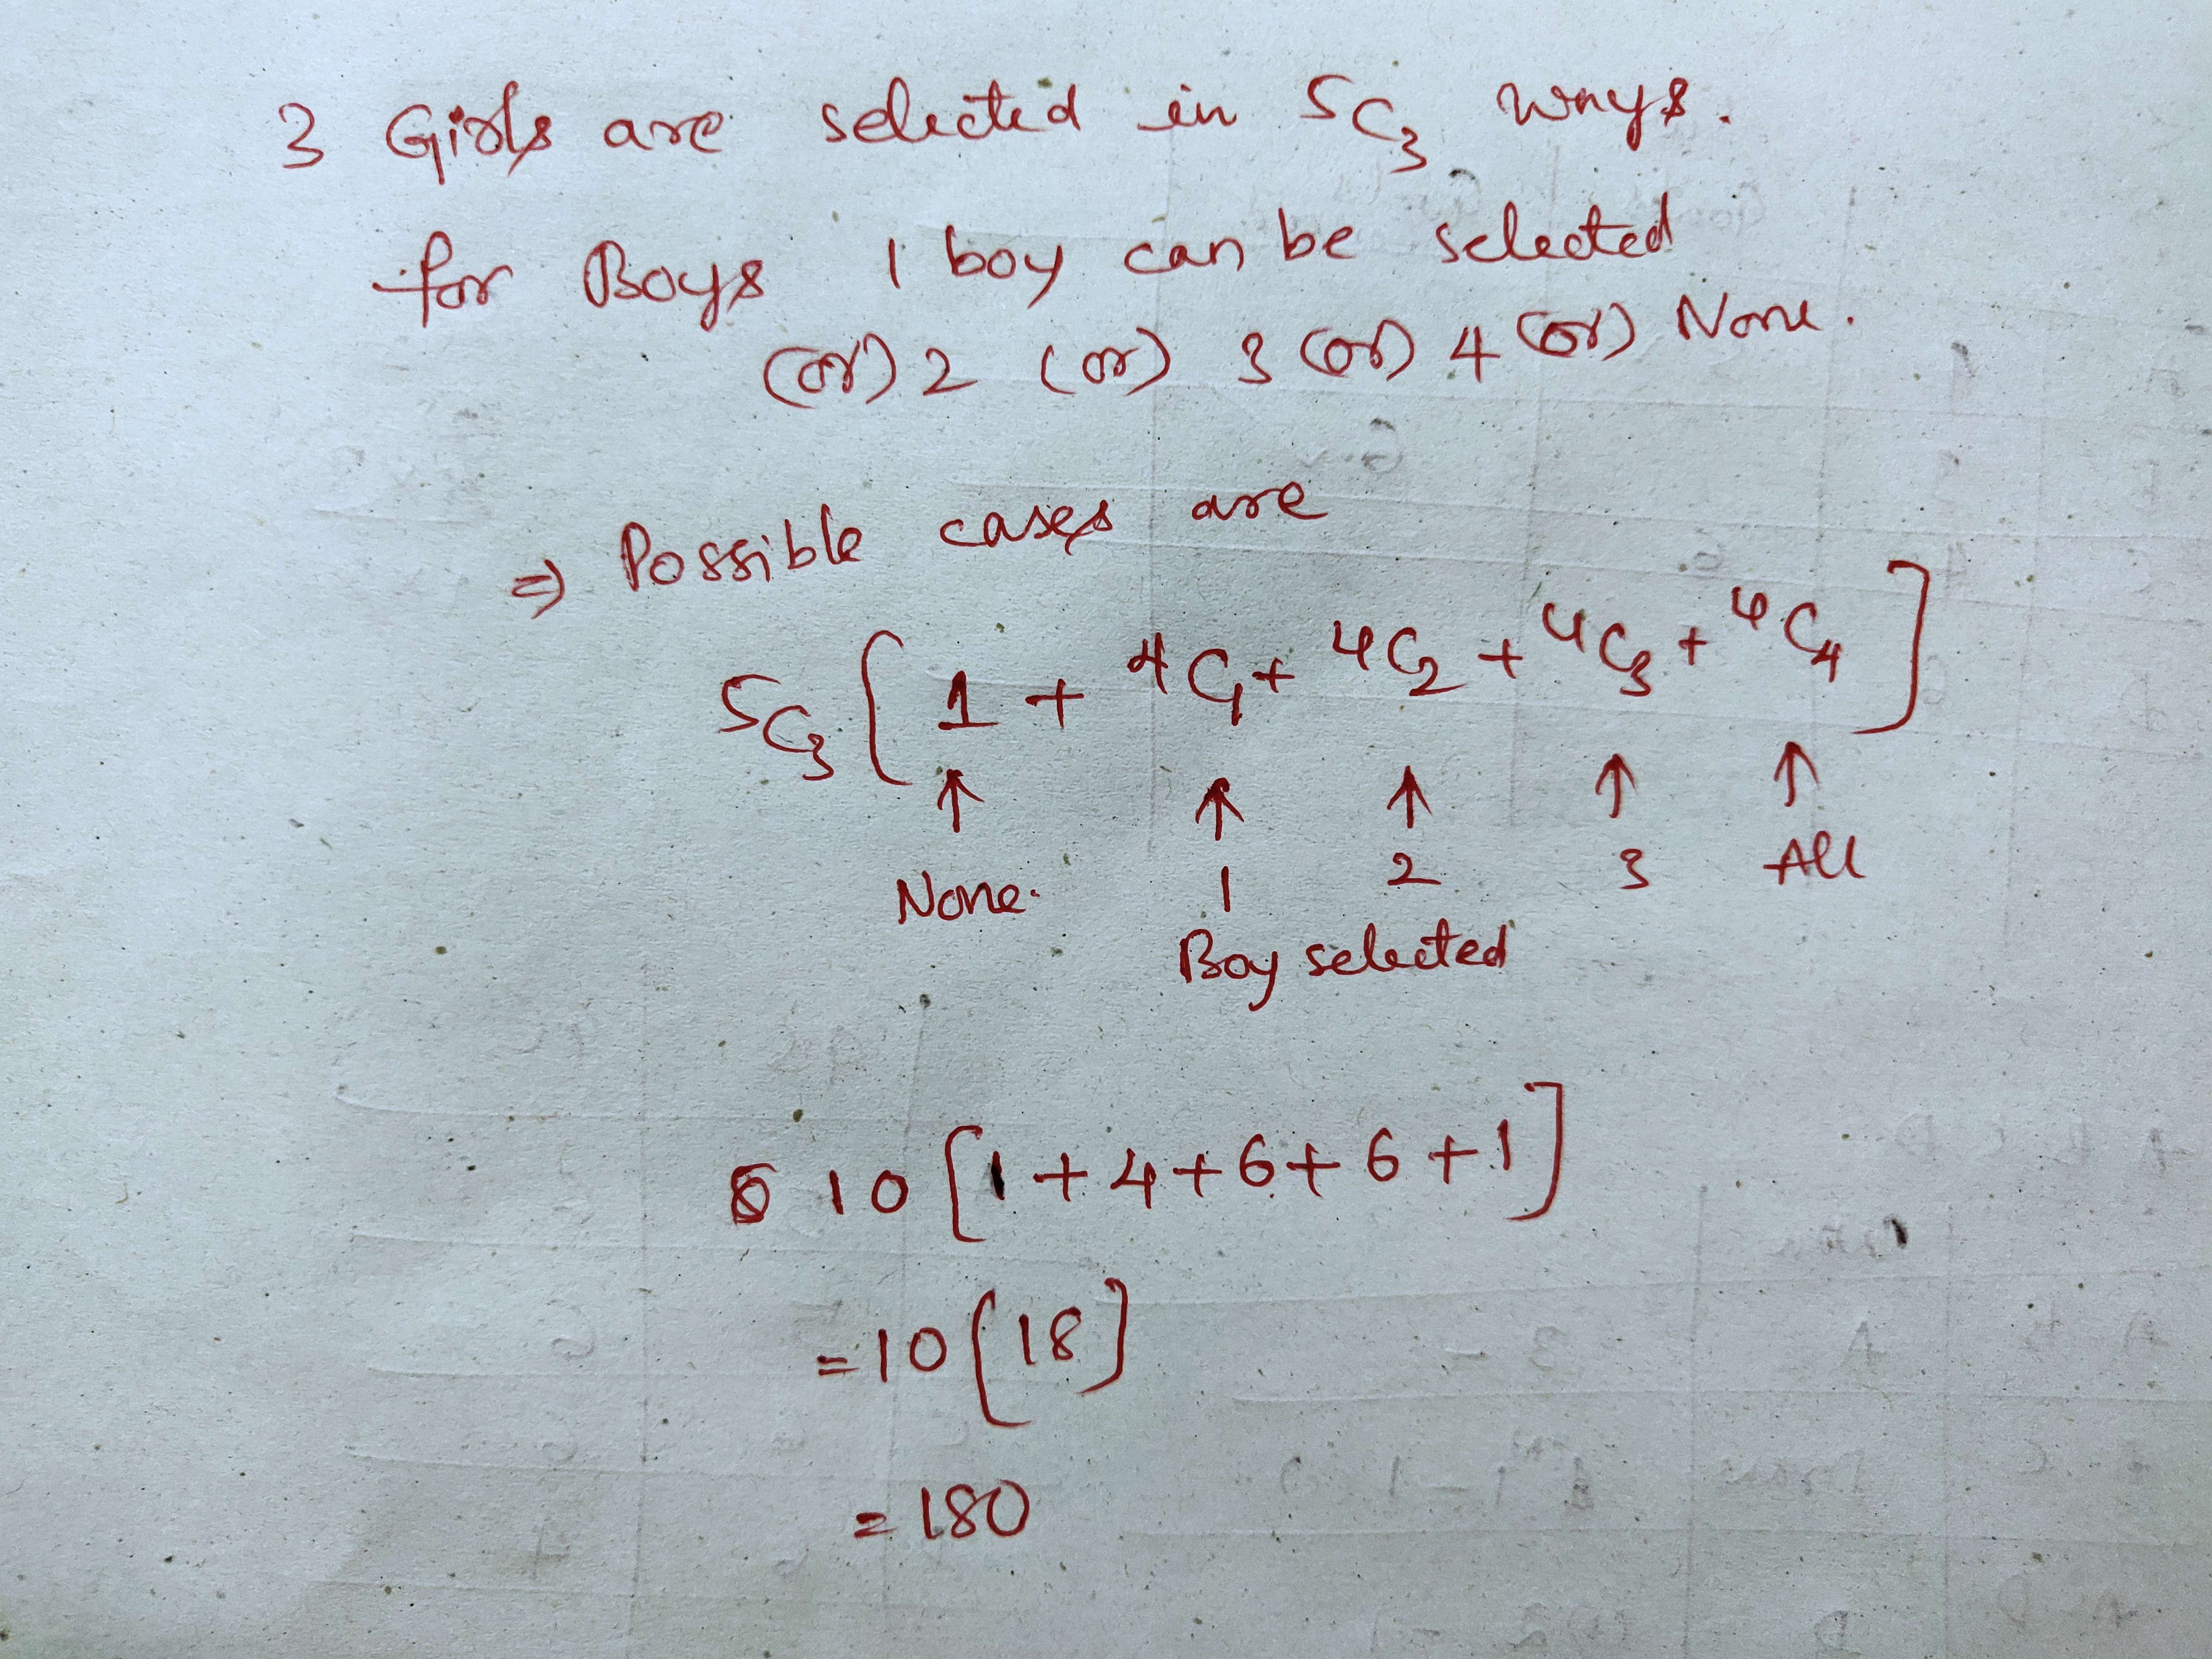 3 Girls are selected in 5C3 ways.
for Boys 1 boy can be selected
(or) 2 (or) 3 (or) 4 (or) None.
⇒ Possible cases are
5C3 [ 1 + 4C1 + 4C2 + 4C3 + 4C4 ]
↑ ↑ ↑ ↑ ↑
None. 1 2 3 All
Boy selected
10 [1 + 4 + 6 + 6 + 1]
= 10 [18]
= 180